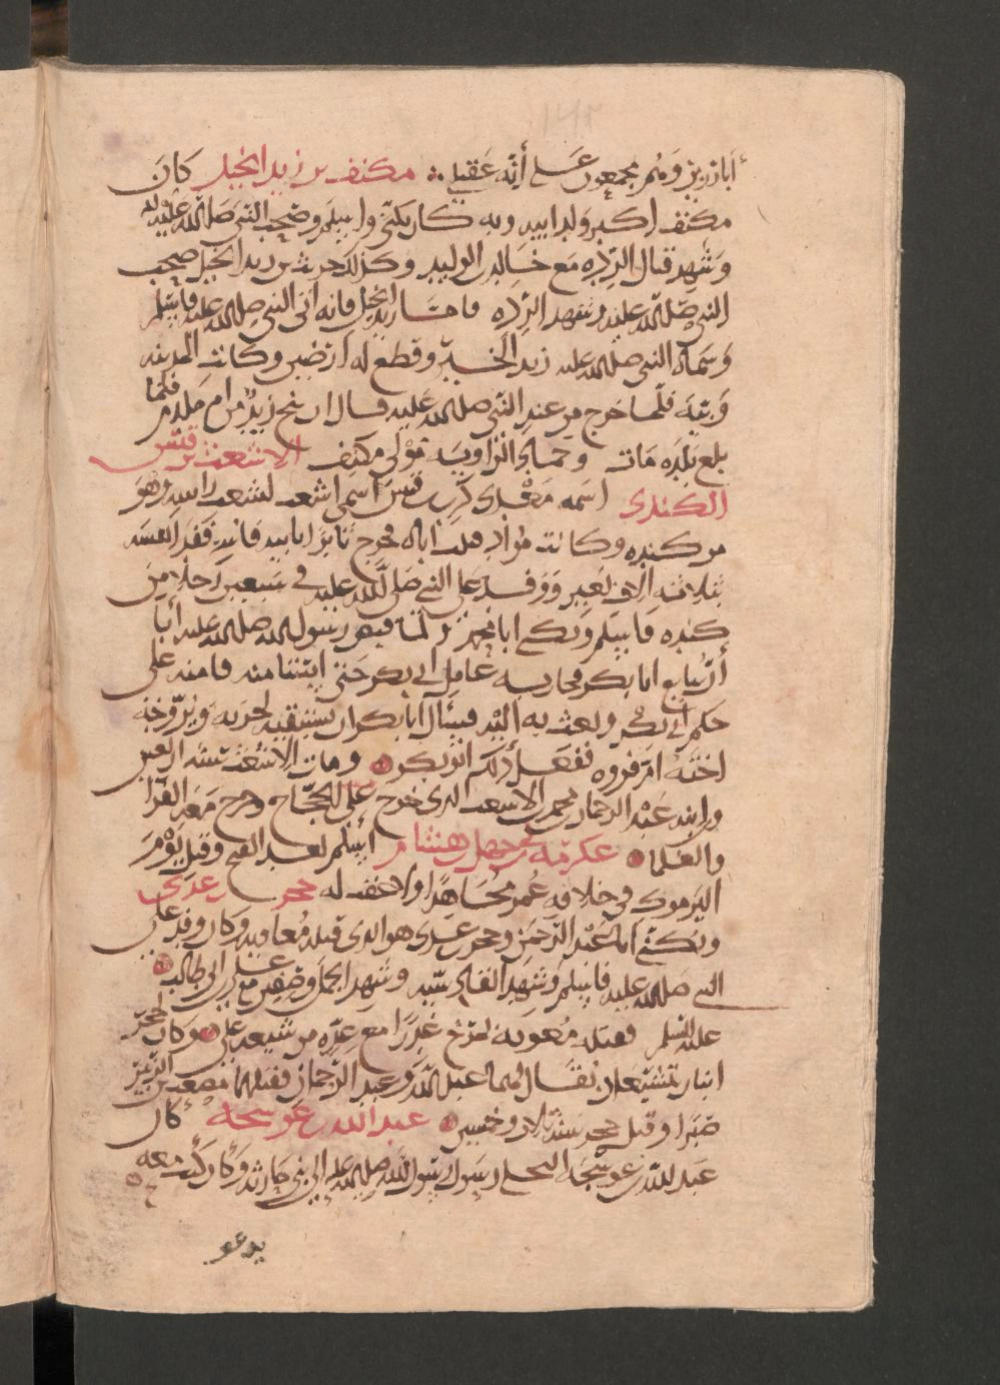 أبا رزين وهم مجمعون على أنه عقيل ∴ مكنف بن زيد الخيل كان
مكنف اكبر ولد ابيه وبه كان يكنى واسلم وصحب النبي صلى الله عليه
وشهد قتال الرده مع خالد بن الوليد وكذلك حريث بن زيد الخيل صحب
النبي صلى الله عليه وشهد الرده فاما زيد الخيل فانه اتى النبي صلى الله عليه فاسلم
وسماه النبي صلى الله عليه زيد الخير وقطع له ارضين وكانت المدينه
وبئه فلما خرج من عند النبي صلى الله عليه قال ان ينج زيد من ام ملدم فلما
بلغ بلده مات وحماد الراويه مولى مكنف الاشعث بن قيس
الكندى اسمه معدي كرب بن قيس اسمى اشعث لشعث راسه وهو
من كنده وكانت مراد قتلت اباه فخرج ثائرا بابيه فاسر ففدا نفسه
بثلاثه الاف بعير ووفد على النبي صلى الله عليه في سبعين رجلا من
كنده فاسلم ويكنى ابا محمد ولما قبض رسول الله صلى الله عليه أبا
أن يبايع ابا بكر فحاربه عامل ابي بكر حتى استامنه فامنه على
حكم ابي بكر وبعث به اليه فسأل ابا بكر ان يستبقيه لحربه ويزوجه
اخته ام فروه ففعل ذلك ابو بكر ومات الاشعث سنه اربعين
وابنه عبد الرحمان بن محمد بن الاشعث الذى خرج على الحجاج وخرج معه القرا
والعلما عكرمه بن ابي جهل بن هشام أسلم بعد الفتح وقتل يوم
اليرموك في خلافه عمر مجاهدا ولا عقب له حجر بن عدى
ويكنى ابا عبد الرحمن وحجر بن عدى هو الذى قتله معاويه وكان وفد على
النبي صلى الله عليه فاسلم وشهد القادسيه وشهد الجمل وصفين مع علي بن ابي طالب
عليه السلم فقتله معويه بمرج عذرا مع عده من شيعه علي وكان لحجر
ابنان يتشيعان يقال لهما عبد الله وعبد الرحمان فقتلهما مصعب بن الزبير
صبرا وقتل حجر سنة ثلاث وخمسين عبد الله بن عوسجه كان
عبد الله بن عوسجه البجلي رسول رسول الله صلى الله عليه الى بني حارثه وكان كتب معه
يدعو